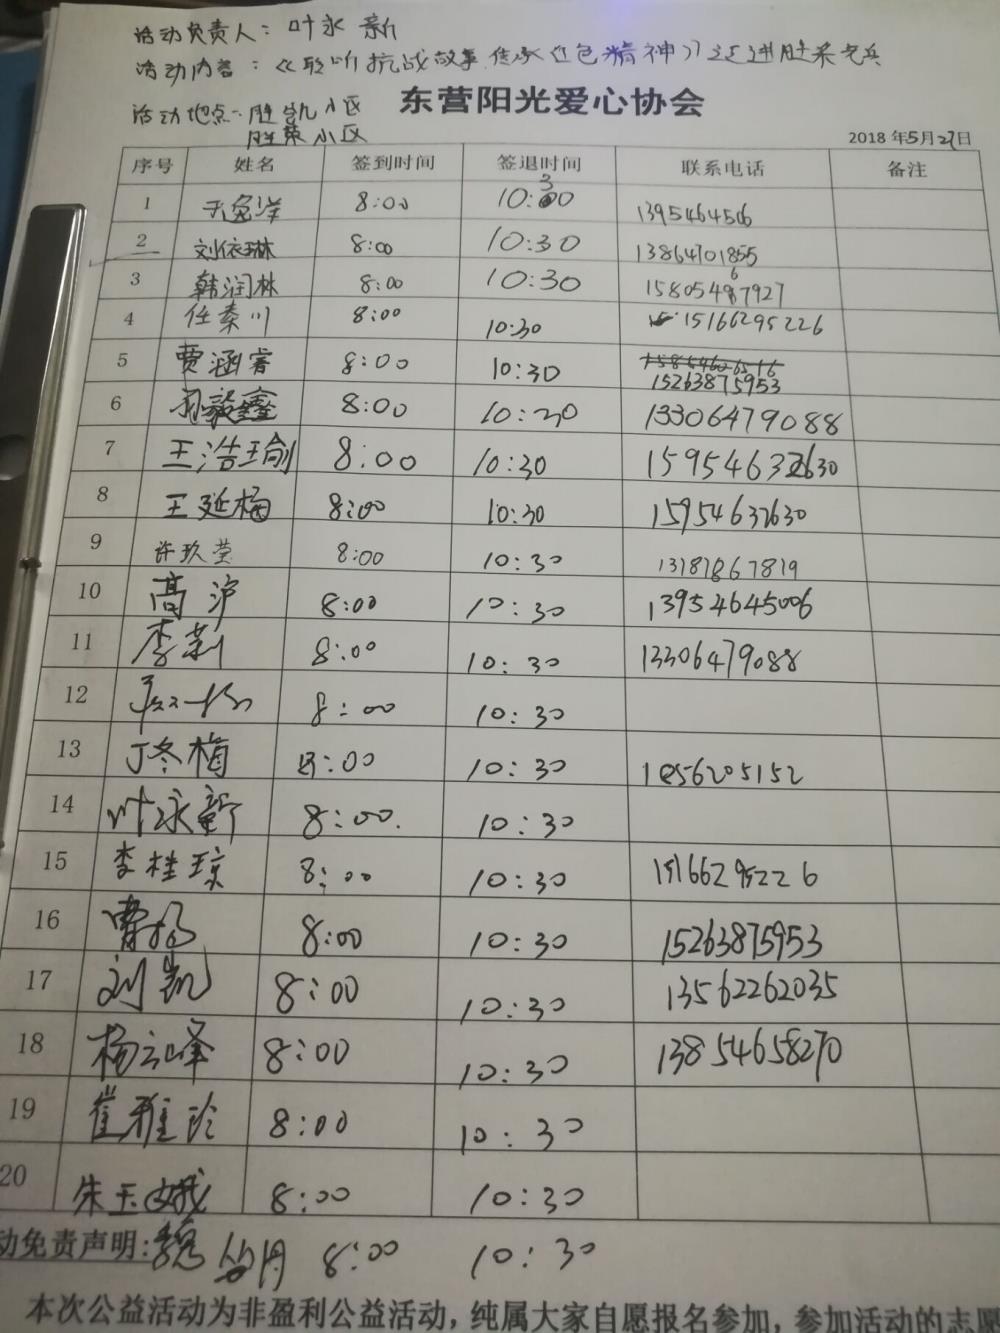 活动负责人：叶永新
活动内容：《聆听抗战故事 传承红色精神》走进胜采老兵
活动地点：胜凯小区
胜东小区
东营阳光爱心协会
2018年5月27日
序号 姓名 签到时间 签退时间 联系电话 备注
1 8:00 10:30 1395464506
2 刘依琳 8:00 10:30 13864701855
3 韩润林 8:00 10:30
4 任秦川 8:00 10:30 15166295226
5 贾涵睿 8:00 10:30 15263875953
6 8:00 10:30 13306479088
7 王浩瑜 8:00 10:30 15954632630
8 王延梅 8:00 10:30 15954632630
9 许玖莹 8:00 10:30 13181867819
10 高沪 8:00 10:30 13954645006
11 李莉 8:00 10:30 13306479088
12 8:00 10:30
13 丁冬梅 8:00 10:30 1856205152
14 叶永新 8:00. 10:30
15 李桂琼 8:00 10:30 15166295226
16 曹杨 8:00 10:30 15263875953
17 刘凯 8:00 10:30 13562262035
18 杨云峰 8:00 10:30 13854658270
19 崔雅玲 8:00 10:30
20 朱玉娥 8:00 10:30
动免责声明: 8:00 10:30
本次公益活动为非盈利公益活动，纯属大家自愿报名参加，参加活动的志愿